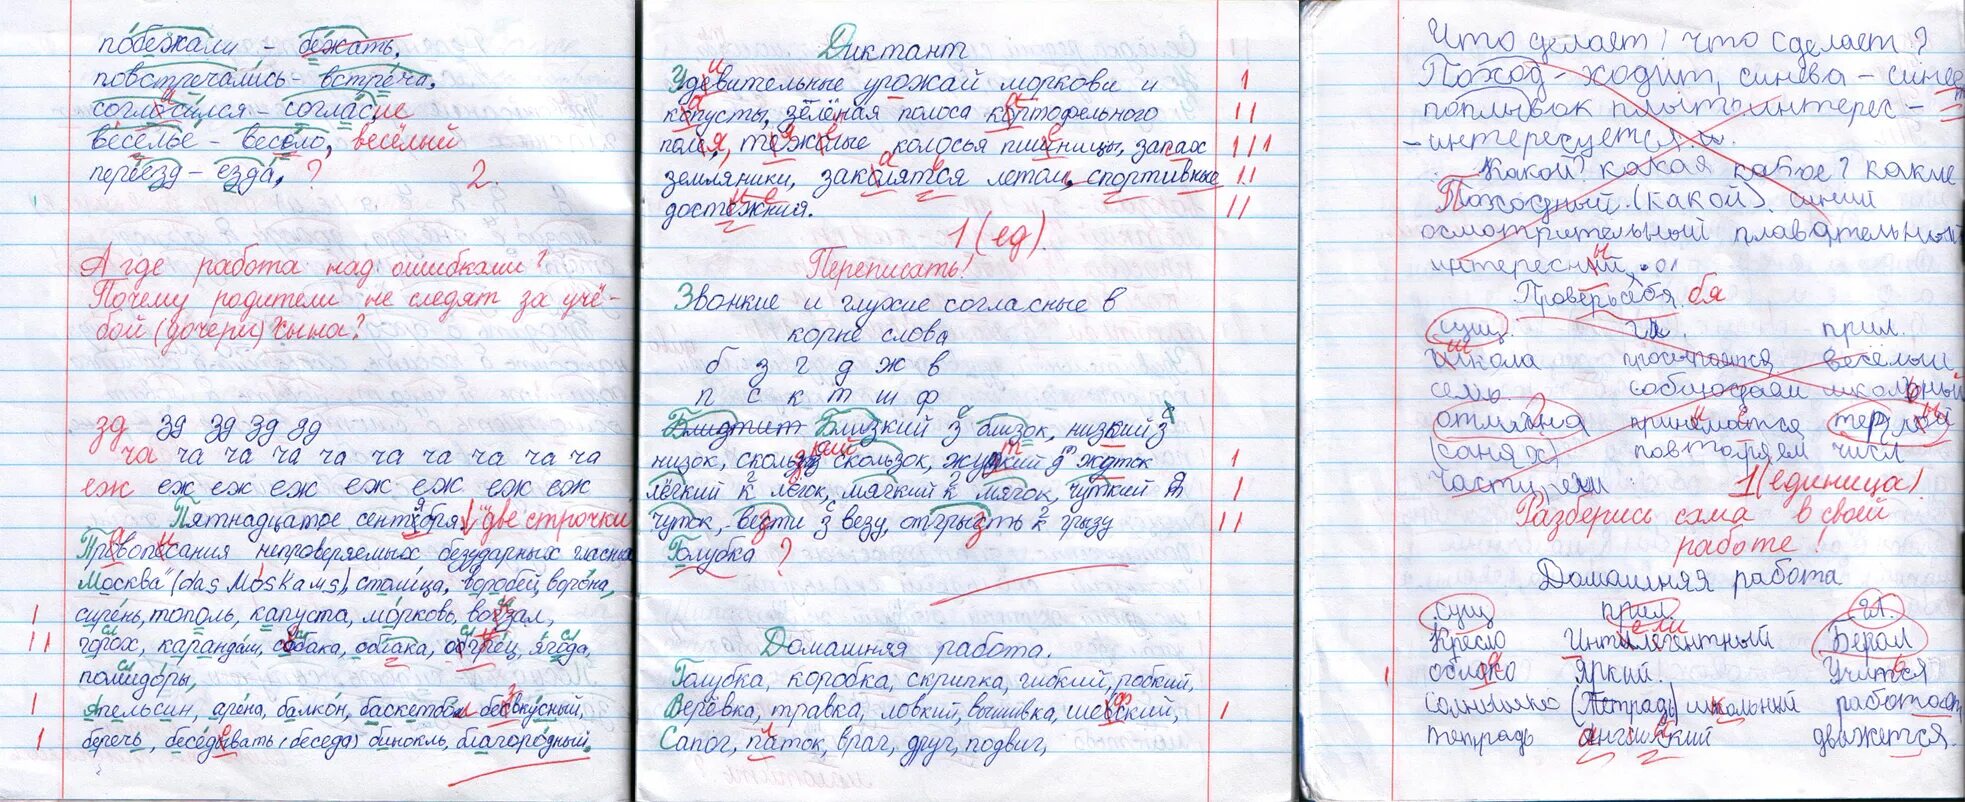 побежали - бежать,
повстречались - встреча,
согласился - согласие
веселье - весело, весёлый
переезд - езда, ? 2
А где работа над ошибками?
Почему родители не следят за учё-
бой (дочери) сына?
зд зд зд зд зд
ча ча ча ча ча ча ча ча ча ча
еж еж еж еж еж еж еж еж
Пятнадцатое сентября. две строчки
Правописания непроверяемых безударных гласных
Москва (das Moskaus), столица, воробей, ворона,
сирень, тополь, капуста, морковь, вокзал,
горох, карандаш, собака, облака, огурец, ягода,
помидоры,
Апельсин, арена, балкон, баскетбол, безвкусный,
беречь, беседывать (беседа) бинокль, благородный.
Диктант
Удевительные урожай моркови и
капусты, зелёная полоса картофельного
поля, тяжёлые колосья пшеницы, запах
земляники, закаляться летом, спортивные
достежния.
1 (ед).
Переписать!
Звонкие и глухие согласные в
корне слова
б з г д ж в
п с к т ш ф
Близкий з близок, низкий з
низок, скользкий скользок, жудкий д жуток
лёгкий к легок, мягкий к мягок, чуткий т
чуток, везти з везу, отгрызть грызу
Голубка ?
Домашняя работа.
Голубка, коробка, скрипка, гибкий, робкий,
Верёвка, травка, ловкий, вышивка, шевский,
Сапог, паток, враг, друг, подвиг,
Что делает? что сделает?
Поход - ходит, синева - синеет
поплывок интерес -
- интересуется.
Какой? какая какое? какие
Походный. (какой). синий
осмотрительный плавательный
интересный,
Проверь себя. бя
сущ. гл. прил.
школа весёлый
семь школьный
(санях) повторяем числ
части, ели 1 (единица).
Разберись сама в своей
работе!
Домашняя работа
сущ прил. гл.
Кресло Интилегентный Бегал
облако Яркий. Учиться
солнышко (Тетрадь) школьний работает
тетрадь английский движется.